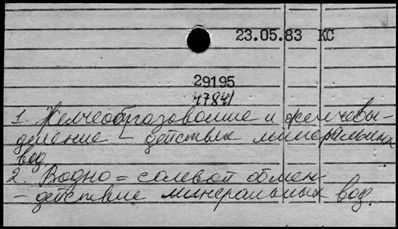 23.05.83 КС
29195
47841
1. Желчеобразование и желчевы-
деление - действие минеральных
вод
2. Водно = солевой обмен -
- действие минеральных вод.